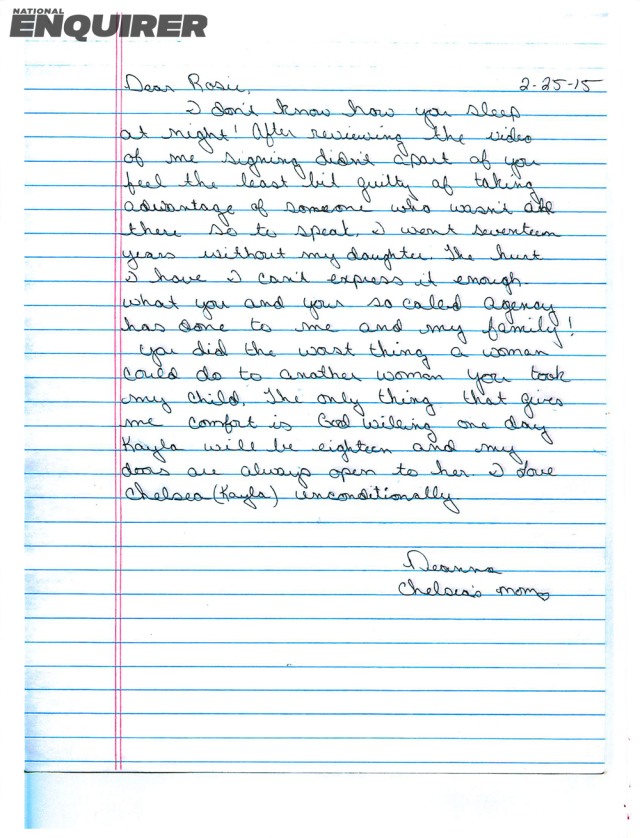 NATIONAL
ENQUIRER
Dear Rosie, 2-25-15
I don't know how you sleep
at night! After reviewing the video
of me signing didn't apart of you
feel the least bit guilty of taking
advantage of someone who wasn't all
there so to speak. I went seventeen
years without my daughter. The hurt
I have I can't express it enough.
what you and your so called agency
has done to me and my family!
you did the worst thing a woman
could do to another woman you took
my child. The only thing that gives
me comfort is God willing one day
Kayla will be eighteen and my
doors are always open to her. I love
Chelsea (Kayla) unconditionally
Deanna
Chelsea's mom♡